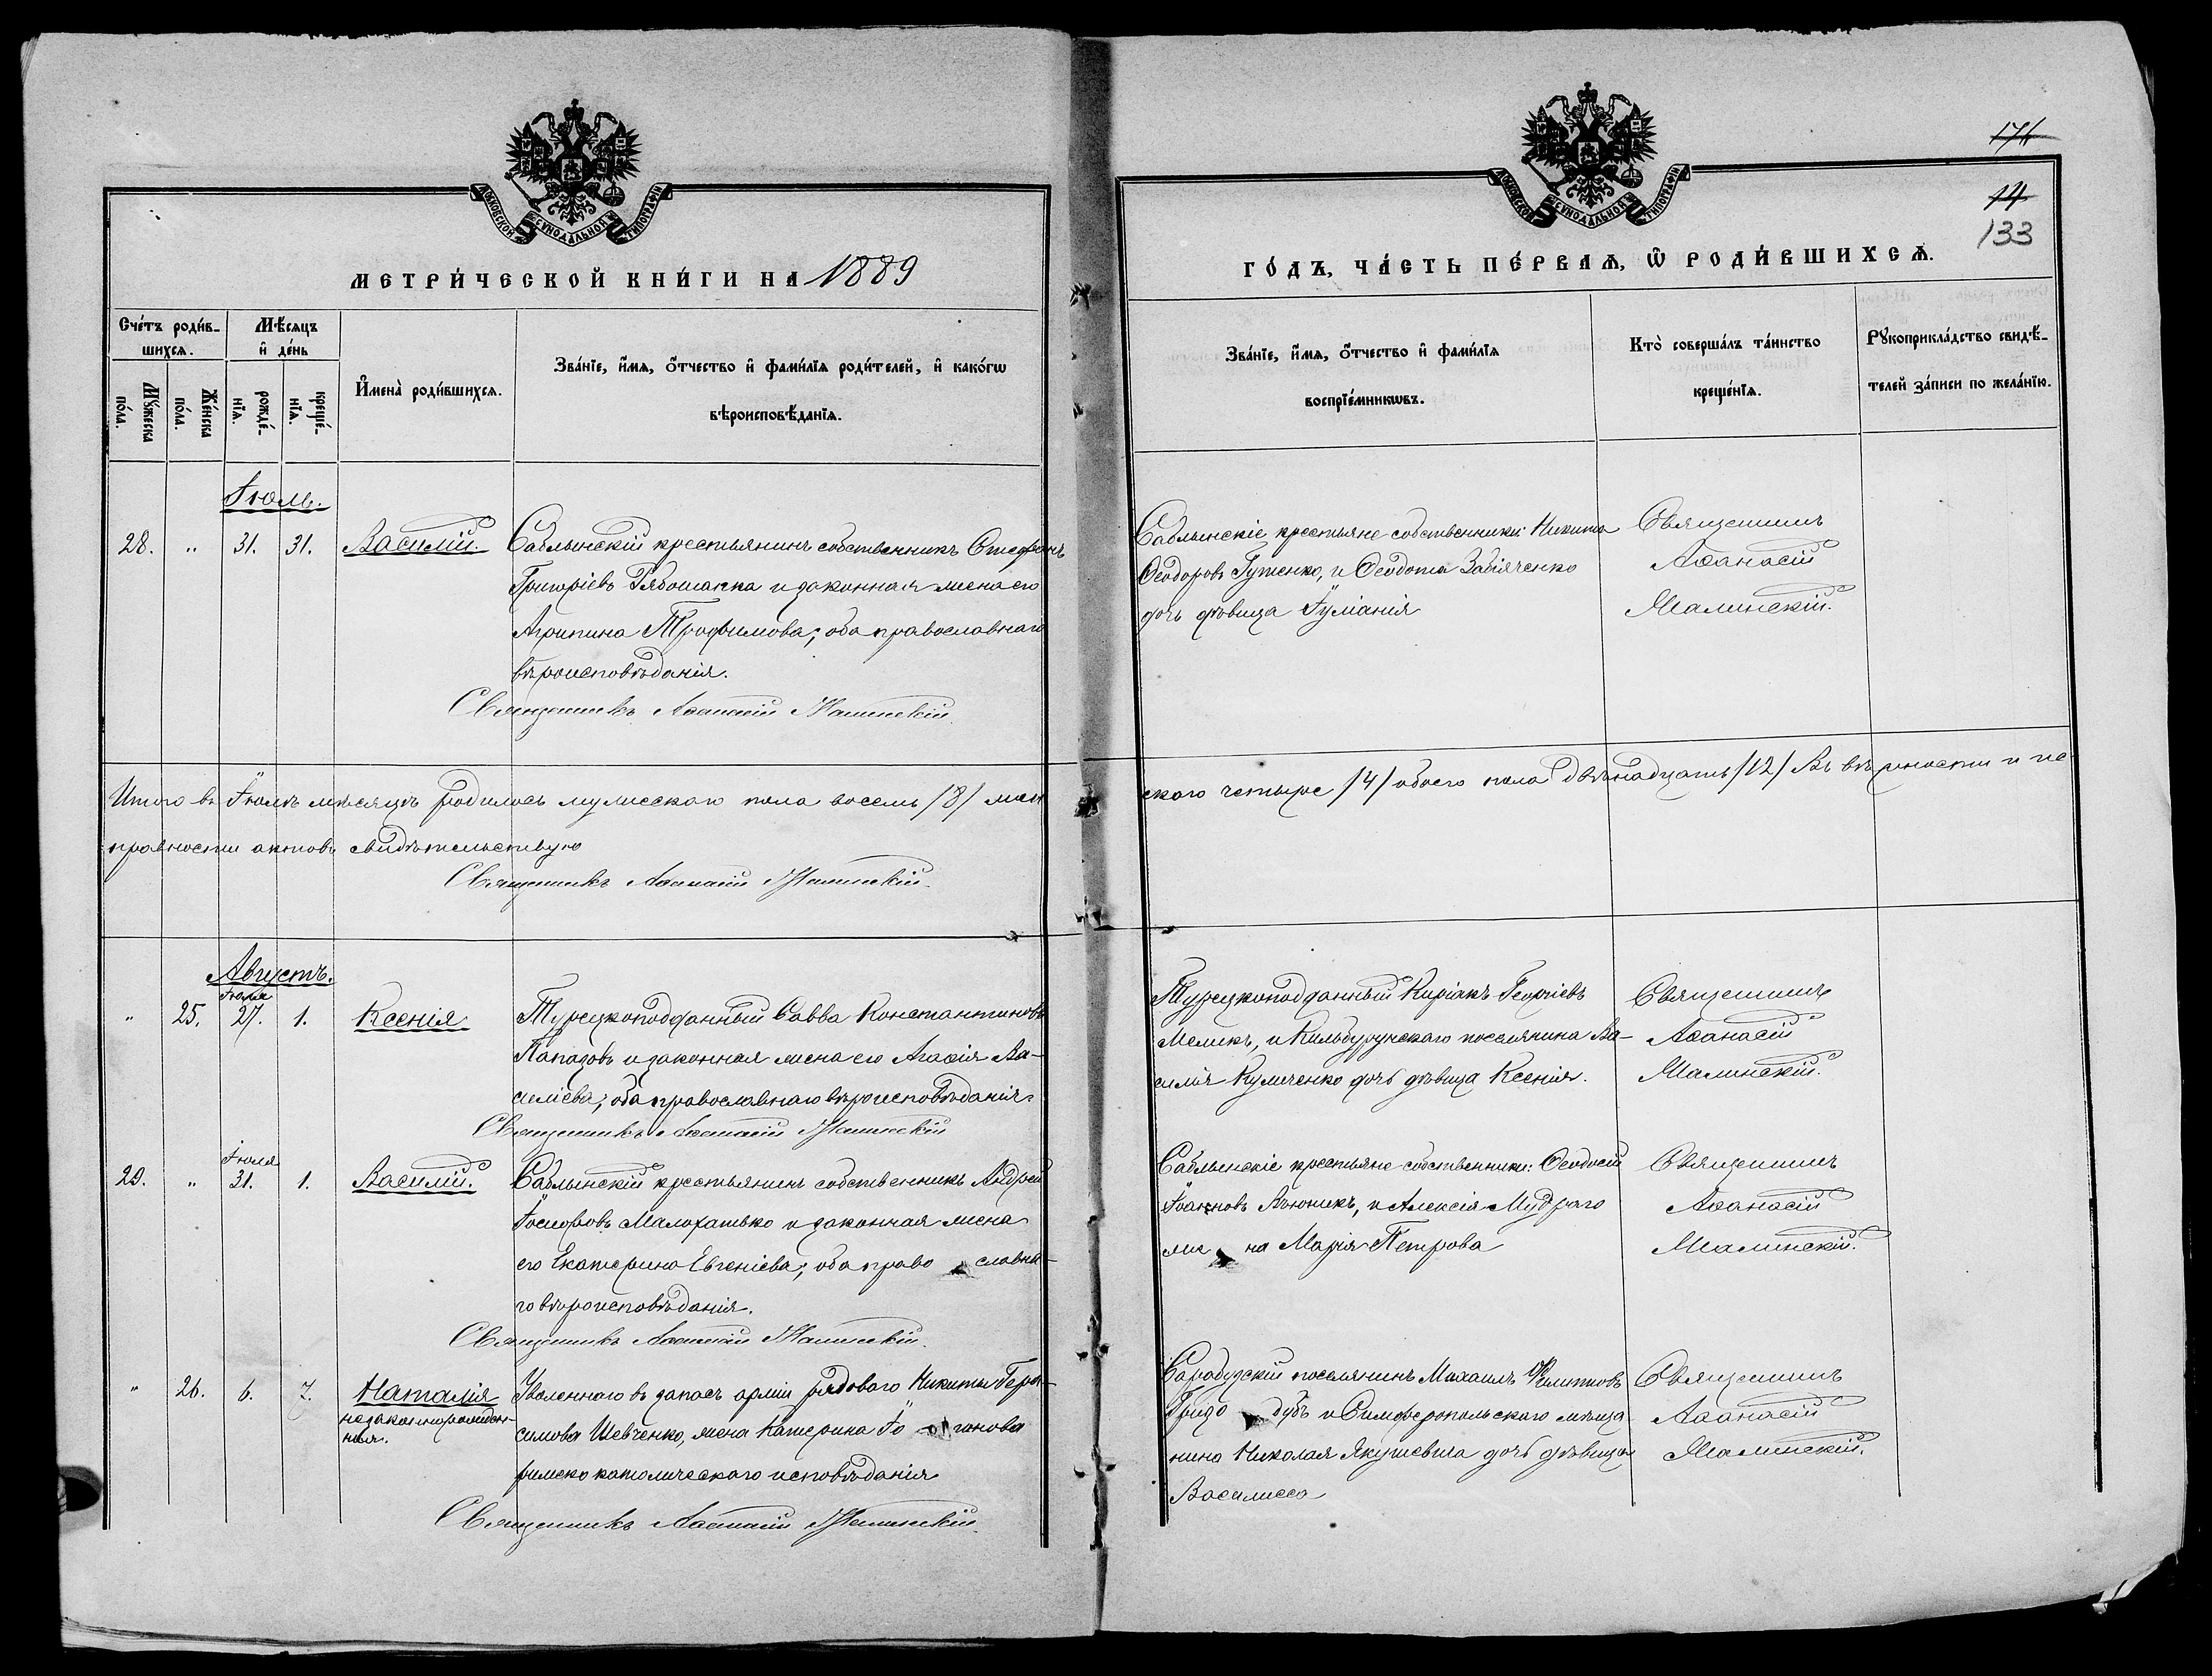 МОСКОВСКОЙ СѴНОДАЛЬНОЙ ТИПОГРАФІИ
МЕТРИ́ЧЕСКОЙ КНИ́ГИ НА 1889
Сче́тъ роди́в-
шихсѧ.
Мѣ́сѧцъ
и҆ де́нь
Мꙋ́жеска
по́ла.
Же́нска
по́ла.
рожде́-
нїѧ.
креще́-
нїѧ.
И҆мена̀ роди́вшихсѧ.
Зва́нїе, и҆́мѧ, ѻ҆́тчество и҆ фами́лїѧ роди́телей, и҆ како́гѡ
вѣроисповѣ́данїѧ.
Іюль.
28. " 31. 31. Василій. Саблынскій крестьянинъ собственникъ Стефанъ
Григоріевъ Рябошапка и законная жена его
Агрипина Трофимова; оба православнаго
вѣроисповѣданія.
Священникъ Аѳанасій Малинскій.
Итого въ Іюлѣ мѣсяцѣ родилось мужескаго пола восемь /8/ жен
правности актовъ свидѣтельствую
Священникъ Аѳанасій Малинскій.
Августъ.
Іюля
" 25. 27. 1. Ксенія Турецкоподданный Савва Константиновъ
Папазовъ и законная жена его Агаѳія Ва-
силіева; оба православнаго вѣроисповѣданія.
Священникъ Аѳанасій Малинскій
Іюля
29. " 31. 1. Василій. Саблынскій крестьянинъ собственникъ Андрей
Іосифовъ Малохатько и законная жена
его Екатерина Евгеніева; оба право славна-
го вѣроисповѣданія.
Священникъ Аѳанасій Малинскій.
" 26. 6. 7. Наталія Уволеннаго въ запасъ арміи рядоваго Никиты Гера-
незаконнорожден-
ная.
симова Шевченко, жена Катерина
римско католическаго исповѣданія
Священникъ Аѳанасій Малинскій.
14
133
МОСКОВСКОЙ СѴНОДАЛЬНОЙ ТИПОГРАФІИ
ГО́ДЪ, ЧА́СТЬ ПЕ́РВАѦ, Ѡ҆ РОДИ́ВШИХСѦ.
Зва́нїе, и҆́мѧ, ѻ҆́тчество и҆ фами́лїѧ
воспрїе́мникѡвъ.
Кто̀ соверша́лъ та́инство
креще́нїѧ.
Рꙋкоприкла́дство свидѣ́-
телей за́писи по жела́нїю.
Саблынскіе крестьяне собственники: Никита
Ѳеодоровъ Гутенко, и Ѳеодота Забіяченко
дочь дѣвица Іуліанія
Священникъ
Аѳанасій
Малинскій.
скаго четыре /4/ обоего пола двѣнадцать /12/ Въ вѣрности и ис
Турецкоподданный Киріакъ Георгіевъ
Мелекъ, и Кильбурунскаго поселянина Ва-
силія Куличенко дочь дѣвица Ксенія.
Священникъ
Аѳанасій
Малинскій.
Саблынскіе крестьяне собственники: Ѳеодосій
Іоанновъ Вьюникъ, и Алексія Мудраго
же на Марія Петрова
Священникъ
Аѳанасій
Малинскій.
Сарабузскій поселянинъ Михаилъ Филипповъ
дубъ и Симферопольскаго мѣща
нина Николая Якушевича дочь дѣвица
Василисса
Священникъ
Аѳанасій
Малинскій.